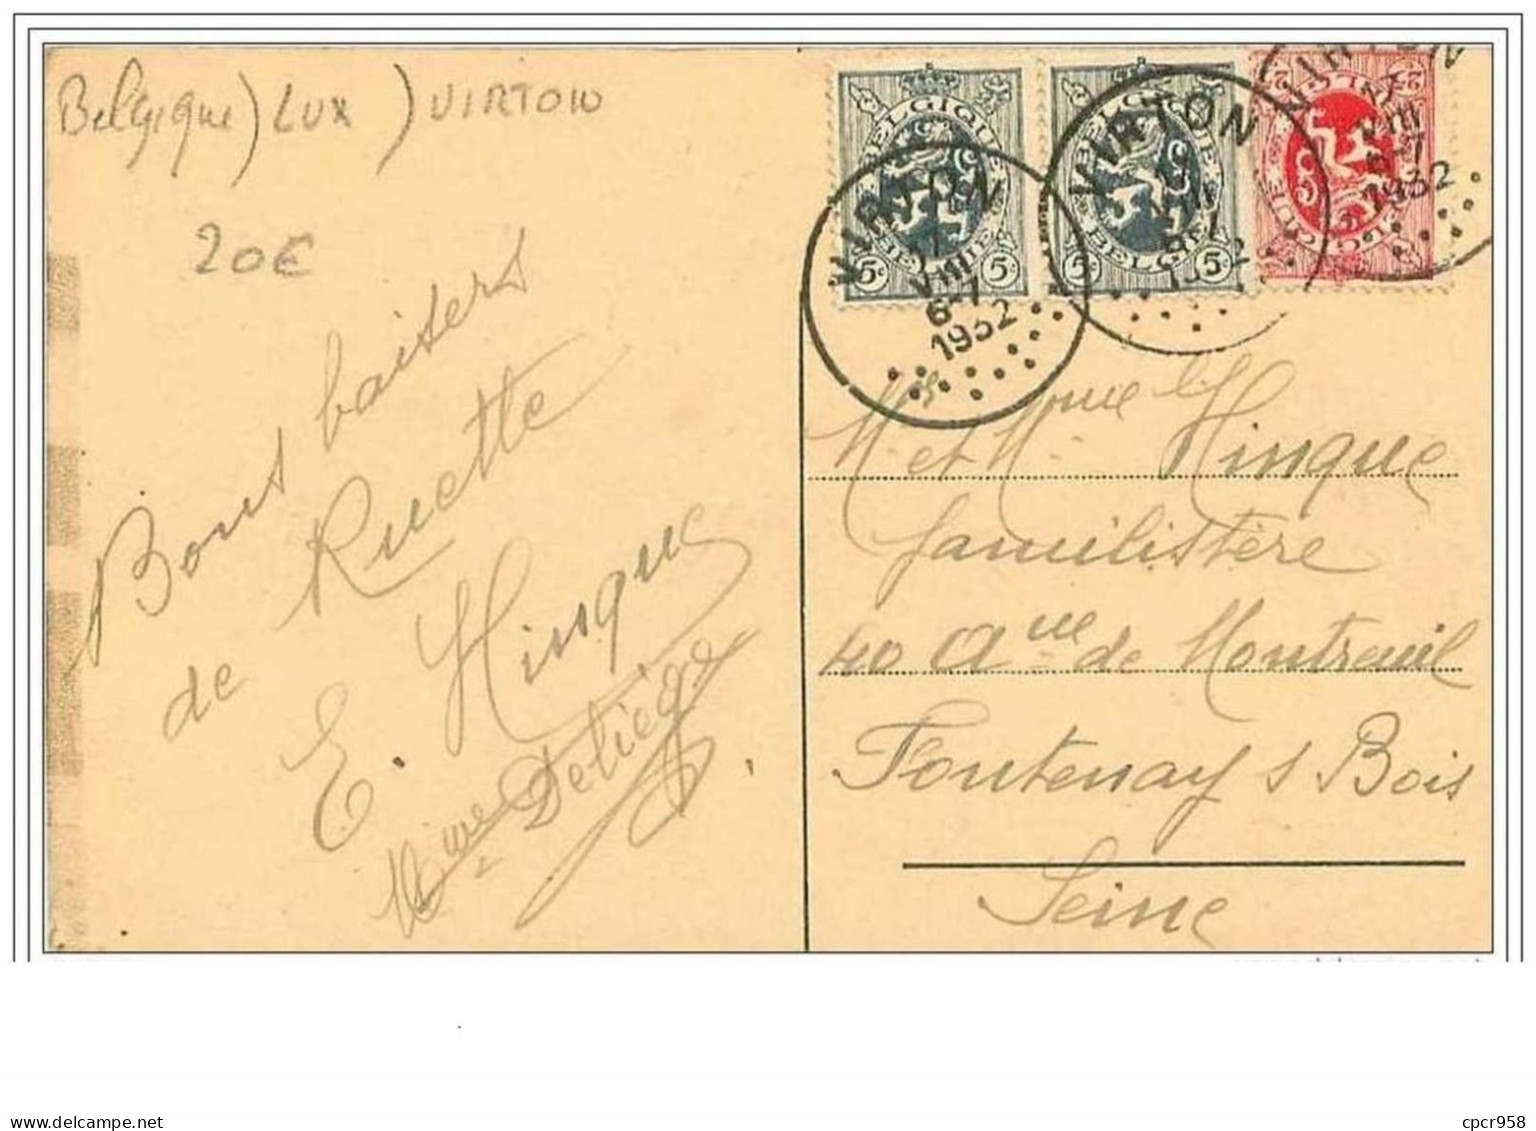 Belgique) Lux) VIRTON
20€
Bons baisers
de Ruette
E. Hinque
Mme Deliège
BELGIQUE
BELGIE
5c 5c
BELGIQUE
BELGIE
5c 5c
2c 2c
VIRTON
VIII
6-7
1932
VIRTON
VIRTON
VIII
6-7
1932
M. et Mme Hinque
familistère
40 Ave de Montreuil
Fontenay s Bois
Seine
delcampe.net
cpcr958